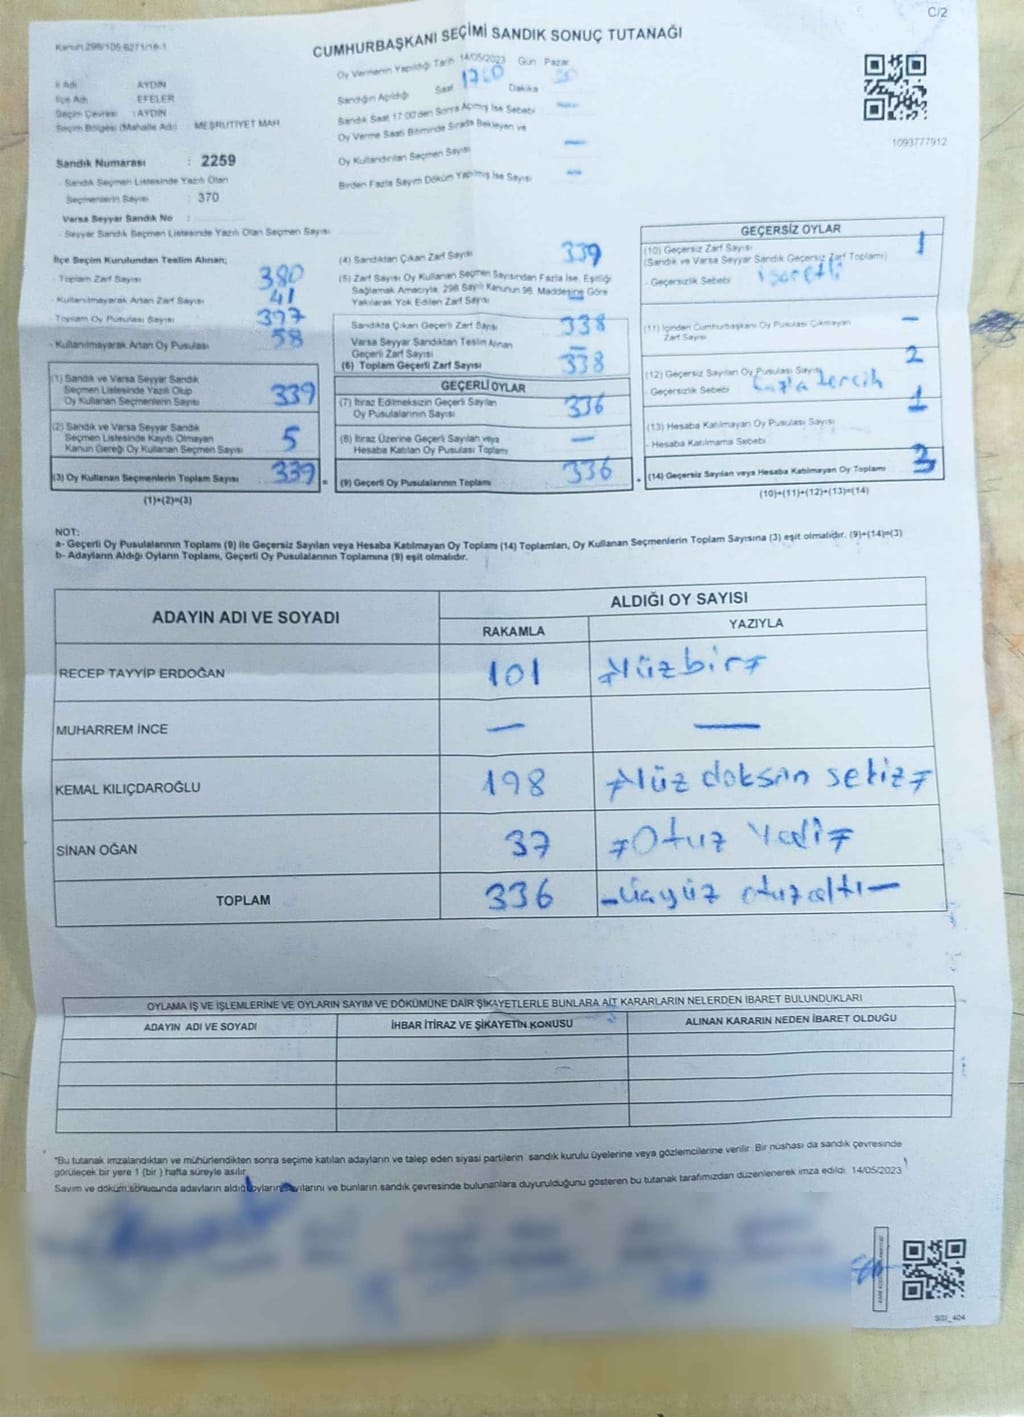 C/2
Kanun 298/105-6271/16-1
CUMHURBAŞKANI SEÇİMİ SANDIK SONUÇ TUTANAĞI
İl Adı AYDIN
İlçe Adı EFELER
Seçim Çevresi : AYDIN
Seçim Bölgesi (Mahalle Adı) MEŞRUTİYET MAH
Sandık Numarası : 2259
- Sandık Seçmen Listesinde Yazılı Olan
Seçmenlerin Sayısı : 370
Varsa Seyyar Sandık No :
- Seyyar Sandık Seçmen Listesinde Yazılı Olan Seçmen Sayısı
Oy Vermenin Yapıldığı Tarih 14/05/2023 Gün Pazar
Sandığın Açıldığı Saat Dakika
Sandık Saat 17:00'den Sonra Açmış İse Sebebi —
Oy Verme Saati Bitiminde Sırada Bekleyen ve
Oy Kullandırılan Seçmen Sayısı —
Birden Fazla Sayım Döküm Yapılmış İse Sayısı —
1093777912
İlçe Seçim Kurulundan Teslim Alınan;
- Toplam Zarf Sayısı 380
- Kullanılmayarak Artan Zarf Sayısı 41
Toplam Oy Pusulası Sayısı 397
- Kullanılmayarak Artan Oy Pusulası 58
(1) Sandık ve Varsa Seyyar Sandık
Seçmen Listesinde Yazılı Olup
Oy Kullanan Seçmenlerin Sayısı 339
(2) Sandık ve Varsa Seyyar Sandık
Seçmen Listesinde Kayıtlı Olmayan
Kanun Gereği Oy Kullanan Seçmen Sayısı 5
(3) Oy Kullanan Seçmenlerin Toplam Sayısı 339 =
(1)+(2)=(3)
(4) Sandıktan Çıkan Zarf Sayısı 339
(5) Zarf Sayısı Oy Kullanan Seçmen Sayısından Fazla İse, Eşitliği
Sağlamak Amacıyla, 298 Sayılı Kanunun 98. Maddesine Göre
Yakılarak Yok Edilen Zarf Sayısı —
Sandıkta Çıkan Geçerli Zarf Sayısı 338
Varsa Seyyar Sandıktan Teslim Alınan
Geçerli Zarf Sayısı —
(6) Toplam Geçerli Zarf Sayısı 338
GEÇERLİ OYLAR
(7) İtiraz Edilmeksizin Geçerli Sayılan
Oy Pusulalarının Sayısı 336
(8) İtiraz Üzerine Geçerli Sayılan veya
Hesaba Katılan Oy Pusulası Toplamı —
(9) Geçerli Oy Pusulalarının Toplamı 336 +
GEÇERSİZ OYLAR
(10) Geçersiz Zarf Sayısı 1
(Sandık ve Varsa Seyyar Sandık Geçersiz Zarf Toplamı)
- Geçersizlik Sebebi işaretli
(11) İçinden Cumhurbaşkanı Oy Pusulası Çıkmayan
Zarf Sayısı —
(12) Geçersiz Sayılan Oy Pusulası Sayısı 2
- Geçersizlik Sebebi Fazla tercih
(13) Hesaba Katılmayan Oy Pusulası Sayısı 1
- Hesaba Katılmama Sebebi
(14) Geçersiz Sayılan veya Hesaba Katılmayan Oy Toplamı 3
(10)+(11)+(12)+(13)=(14)
NOT:
a- Geçerli Oy Pusulalarının Toplamı (9) ile Geçersiz Sayılan veya Hesaba Katılmayan Oy Toplamı (14) Toplamları, Oy Kullanan Seçmenlerin Toplam Sayısına (3) eşit olmalıdır. (9)+(14)=(3)
b- Adayların Aldığı Oyların Toplamı, Geçerli Oy Pusulalarının Toplamına (9) eşit olmalıdır.
ADAYIN ADI VE SOYADI ALDIĞI OY SAYISI
RAKAMLA YAZIYLA
RECEP TAYYİP ERDOĞAN 101 Yüzbir
MUHARREM İNCE — —
KEMAL KILIÇDAROĞLU 198 Yüz doksan sekiz
SİNAN OĞAN 37 Otuz Yedi
TOPLAM 336 -üçyüz otuzaltı-
OYLAMA İŞ VE İŞLEMLERİNE VE OYLARIN SAYIM VE DÖKÜMÜNE DAİR ŞİKAYETLERLE BUNLARA AİT KARARLARIN NELERDEN İBARET BULUNDUKLARI
ADAYIN ADI VE SOYADI İHBAR İTİRAZ VE ŞİKAYETİN KONUSU ALINAN KARARIN NEDEN İBARET OLDUĞU
*Bu tutanak imzalandıktan ve mühürlendikten sonra seçime katılan adayların ve talep eden siyasi partilerin sandık kurulu üyelerine veya gözlemcilerine verilir. Bir nüshası da sandık çevresinde
görülecek bir yere 1 (bir ) hafta süreyle asılır.
Sayım ve döküm sonucunda adayların aldığı oyların sayılarını ve bunların sandık çevresinde bulunanlara duyurulduğunu gösteren bu tutanak tarafımızdan düzenlenerek imza edildi. 14/05/2023